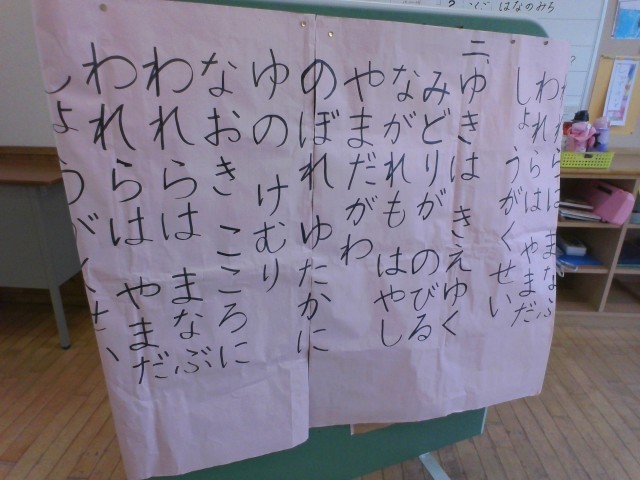 はなのみち
われらは まなぶ
われらは やまだ
しょうがくせい
二、ゆきは きえゆく
みどりが のびる
ながれも はやし
やまだがわ
のぼれ ゆたかに
ゆの けむり
なおき こころに
われらは まなぶ
われらは やまだ
しょうがくせい